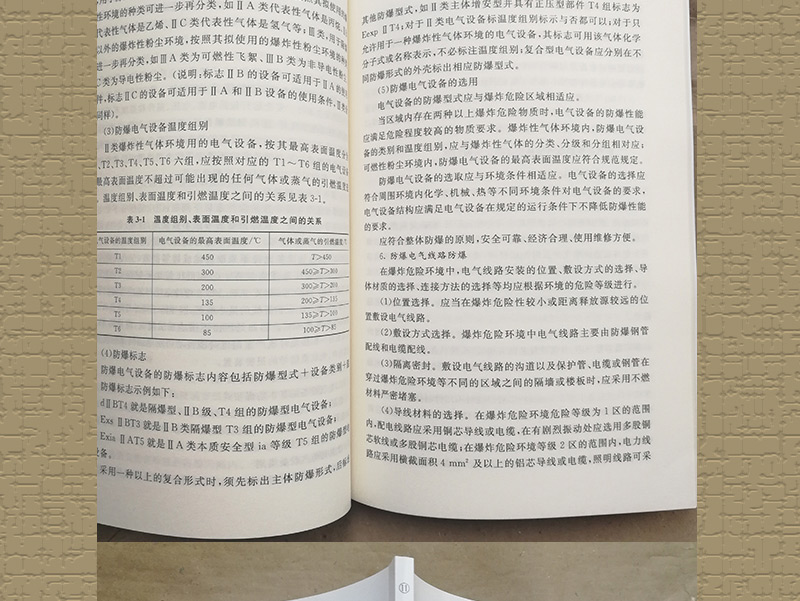 环境的种类可进一步再分类,如ⅡA类代表性气体是丙烷
代表性气体是乙烯、ⅡC类代表性气体是氢气等;Ⅲ类,用于
以外的爆炸性粉尘环境,按照其拟使用的爆炸性粉尘环境的种
进一步再分类,如ⅢA类为可燃性飞絮、ⅢB类为非导电性粉尘
C类为导电性粉尘。(说明:标志ⅡB的设备可适用于ⅡA的使
件,标志ⅡC的设备可适用于ⅡA和ⅡB设备的使用条件,Ⅲ类
同样)。
(3)防爆电气设备温度组别
Ⅱ类爆炸性气体环境用的电气设备,按其最高表面温度分
、T2、T3、T4、T5、T6六组,应按照对应的T1~T6组的电气设
最高表面温度不超过可能出现的任何气体或蒸气的引燃温度
。温度组别、表面温度和引燃温度之间的关系见表3-1。
表3-1 温度组别、表面温度和引燃温度之间的关系
气设备的温度组别 电气设备的最高表面温度/℃ 气体或蒸气的引燃温度
T1 450 T>450
T2 300 450≥T>300
T3 200 300≥T>200
T4 135 200≥T>135
T5 100 135≥T>100
T6 85 100≥T>85
(4)防爆标志
防爆电气设备的防爆标志内容包括防爆型式+设备类别+
防爆标志示例如下:
dⅡBT4就是隔爆型、ⅡB级、T4组的防爆型电气设备;
ExsⅡBT3就是ⅡB类隔爆型T3组的防爆型电气设备;
ExiaⅡAT5就是ⅡA类本质安全型ia等级T5组的防爆型
设备。
采用一种以上的复合形式时,须先标出主体防爆形式,后标
其他防爆型式,如Ⅱ类主体增安型并具有正压型部件T4组标志为
EexpⅡT4;对于Ⅱ类电气设备标温度组别标示与否都可以;对于只
允许用于一种爆炸性气体环境的电气设备,其标志可用该气体化学
分子式或名称表示,不必标注温度组别;复合型电气设备应分别在不
同防爆形式的外壳标出相应防爆型式。
(5)防爆电气设备的选用
电气设备的防爆型式应与爆炸危险区域相适应。
当区域内存在两种以上爆炸危险物质时,电气设备的防爆性能
应满足危险程度较高的物质要求。爆炸性气体环境内,防爆电气设
备的类别和温度组别,应与爆炸性气体的分类、分级和分组相对应;
可燃性粉尘环境内,防爆电气设备的最高表面温度应符合规范规定。
防爆电气设备的选取应与环境条件相适应。电气设备的选择应
符合周围环境内化学、机械、热等不同环境条件对电气设备的要求,
电气设备结构应满足电气设备在规定的运行条件下不降低防爆性能
的要求。
应符合整体防爆的原则,安全可靠、经济合理、使用维修方便。
6. 防爆电气线路防爆
在爆炸危险环境中,电气线路安装的位置、敷设方式的选择、导
体材质的选择、连接方法的选择等均应根据环境的危险等级进行。
(1)位置选择。应当在爆炸危险性较小或距离释放源较远的位
置敷设电气线路。
(2)敷设方式选择。爆炸危险环境中电气线路主要由防爆钢管
配线和电缆配线。
(3)隔离密封。敷设电气线路的沟道以及保护管、电缆或钢管在
穿过爆炸危险环境等不同的区域之间的隔墙或楼板时,应采用不燃
材料严密堵塞。
(4)导线材料的选择。在爆炸危险环境危险等级为1区的范围
内,配电线路应采用铜芯导线或电缆,在有剧烈振动处应选用多股铜
芯软线或多股铜芯电缆;在爆炸危险环境等级2区的范围内,电力线
路应采用横截面积4 mm²及以上的铝芯导线或电缆,照明线路可采